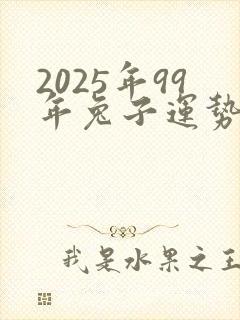 2025年99
年兔子運勢
我是水果之王